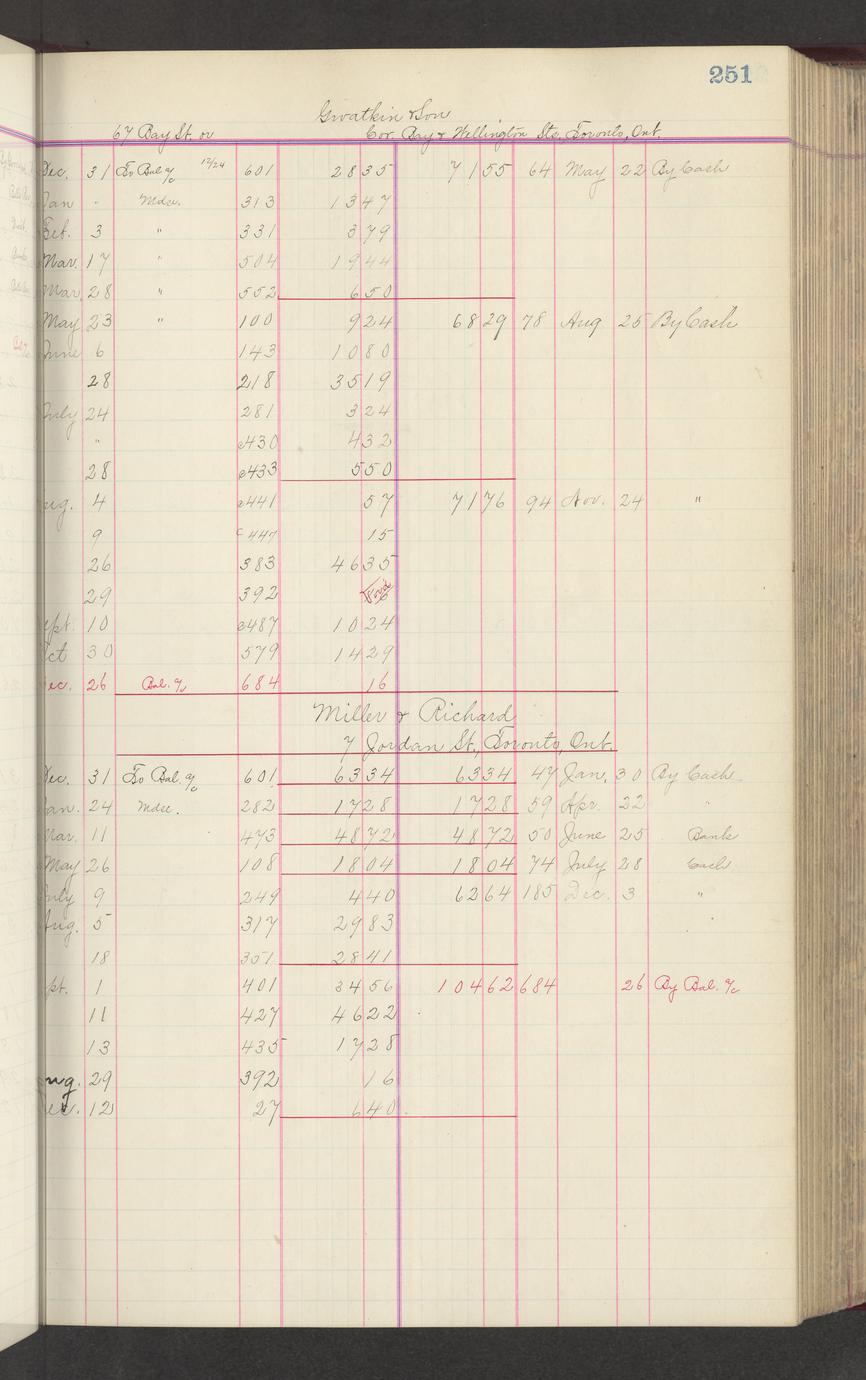 251
Gwatkin & Son
67 Bay St. or Cor. Bay & Wellington Sts, Toronto, Ont.
Dec. 31 To Bal a/c 12/24 601 28 35 71 55 64 May 22 By Cash
Jan " Mdse. 313 13 47
Feb. 3 " 331 3 79
Mar. 17 " 504 19 44
Mar 28 552 6 50
May 23 " 100 9 24 68 29 78 Aug 25 By Cash
June 6 143 10 80
28 218 35 19
July 24 281 3 24
" c430 4 32
28 c433 5 50
ug. 4 c441 57 71 76 94 Nov. 24 "
9 c447 15
26 383 46 35
29 392
ept. 10 c487 10 24
ct 30 579 14 29
ec. 26 Bal. a/c 684 16
Miller & Richard
7 Jordan St., Toronto, Ont.
Dec. 31 To Bal a/c 601 63 34 63 34 47 Jan. 30 By Cash
an. 24 Mdse. 282 17 28 17 28 59 Apr. 22 "
Mar. 11 473 48 72 48 72 50 June 25 Bank
May 26 108 18 04 18 04 74 July 28 Cash
July 9 249 4 40 62 64 185 Dec. 3 "
Aug. 5 317 29 83
18 351 28 41
pt. 1 401 34 56 104 62 684 26 By Bal. a/c
11 427 46 22
13 435 17 28
ug. 29 392 16
ec. 12 27 6 40